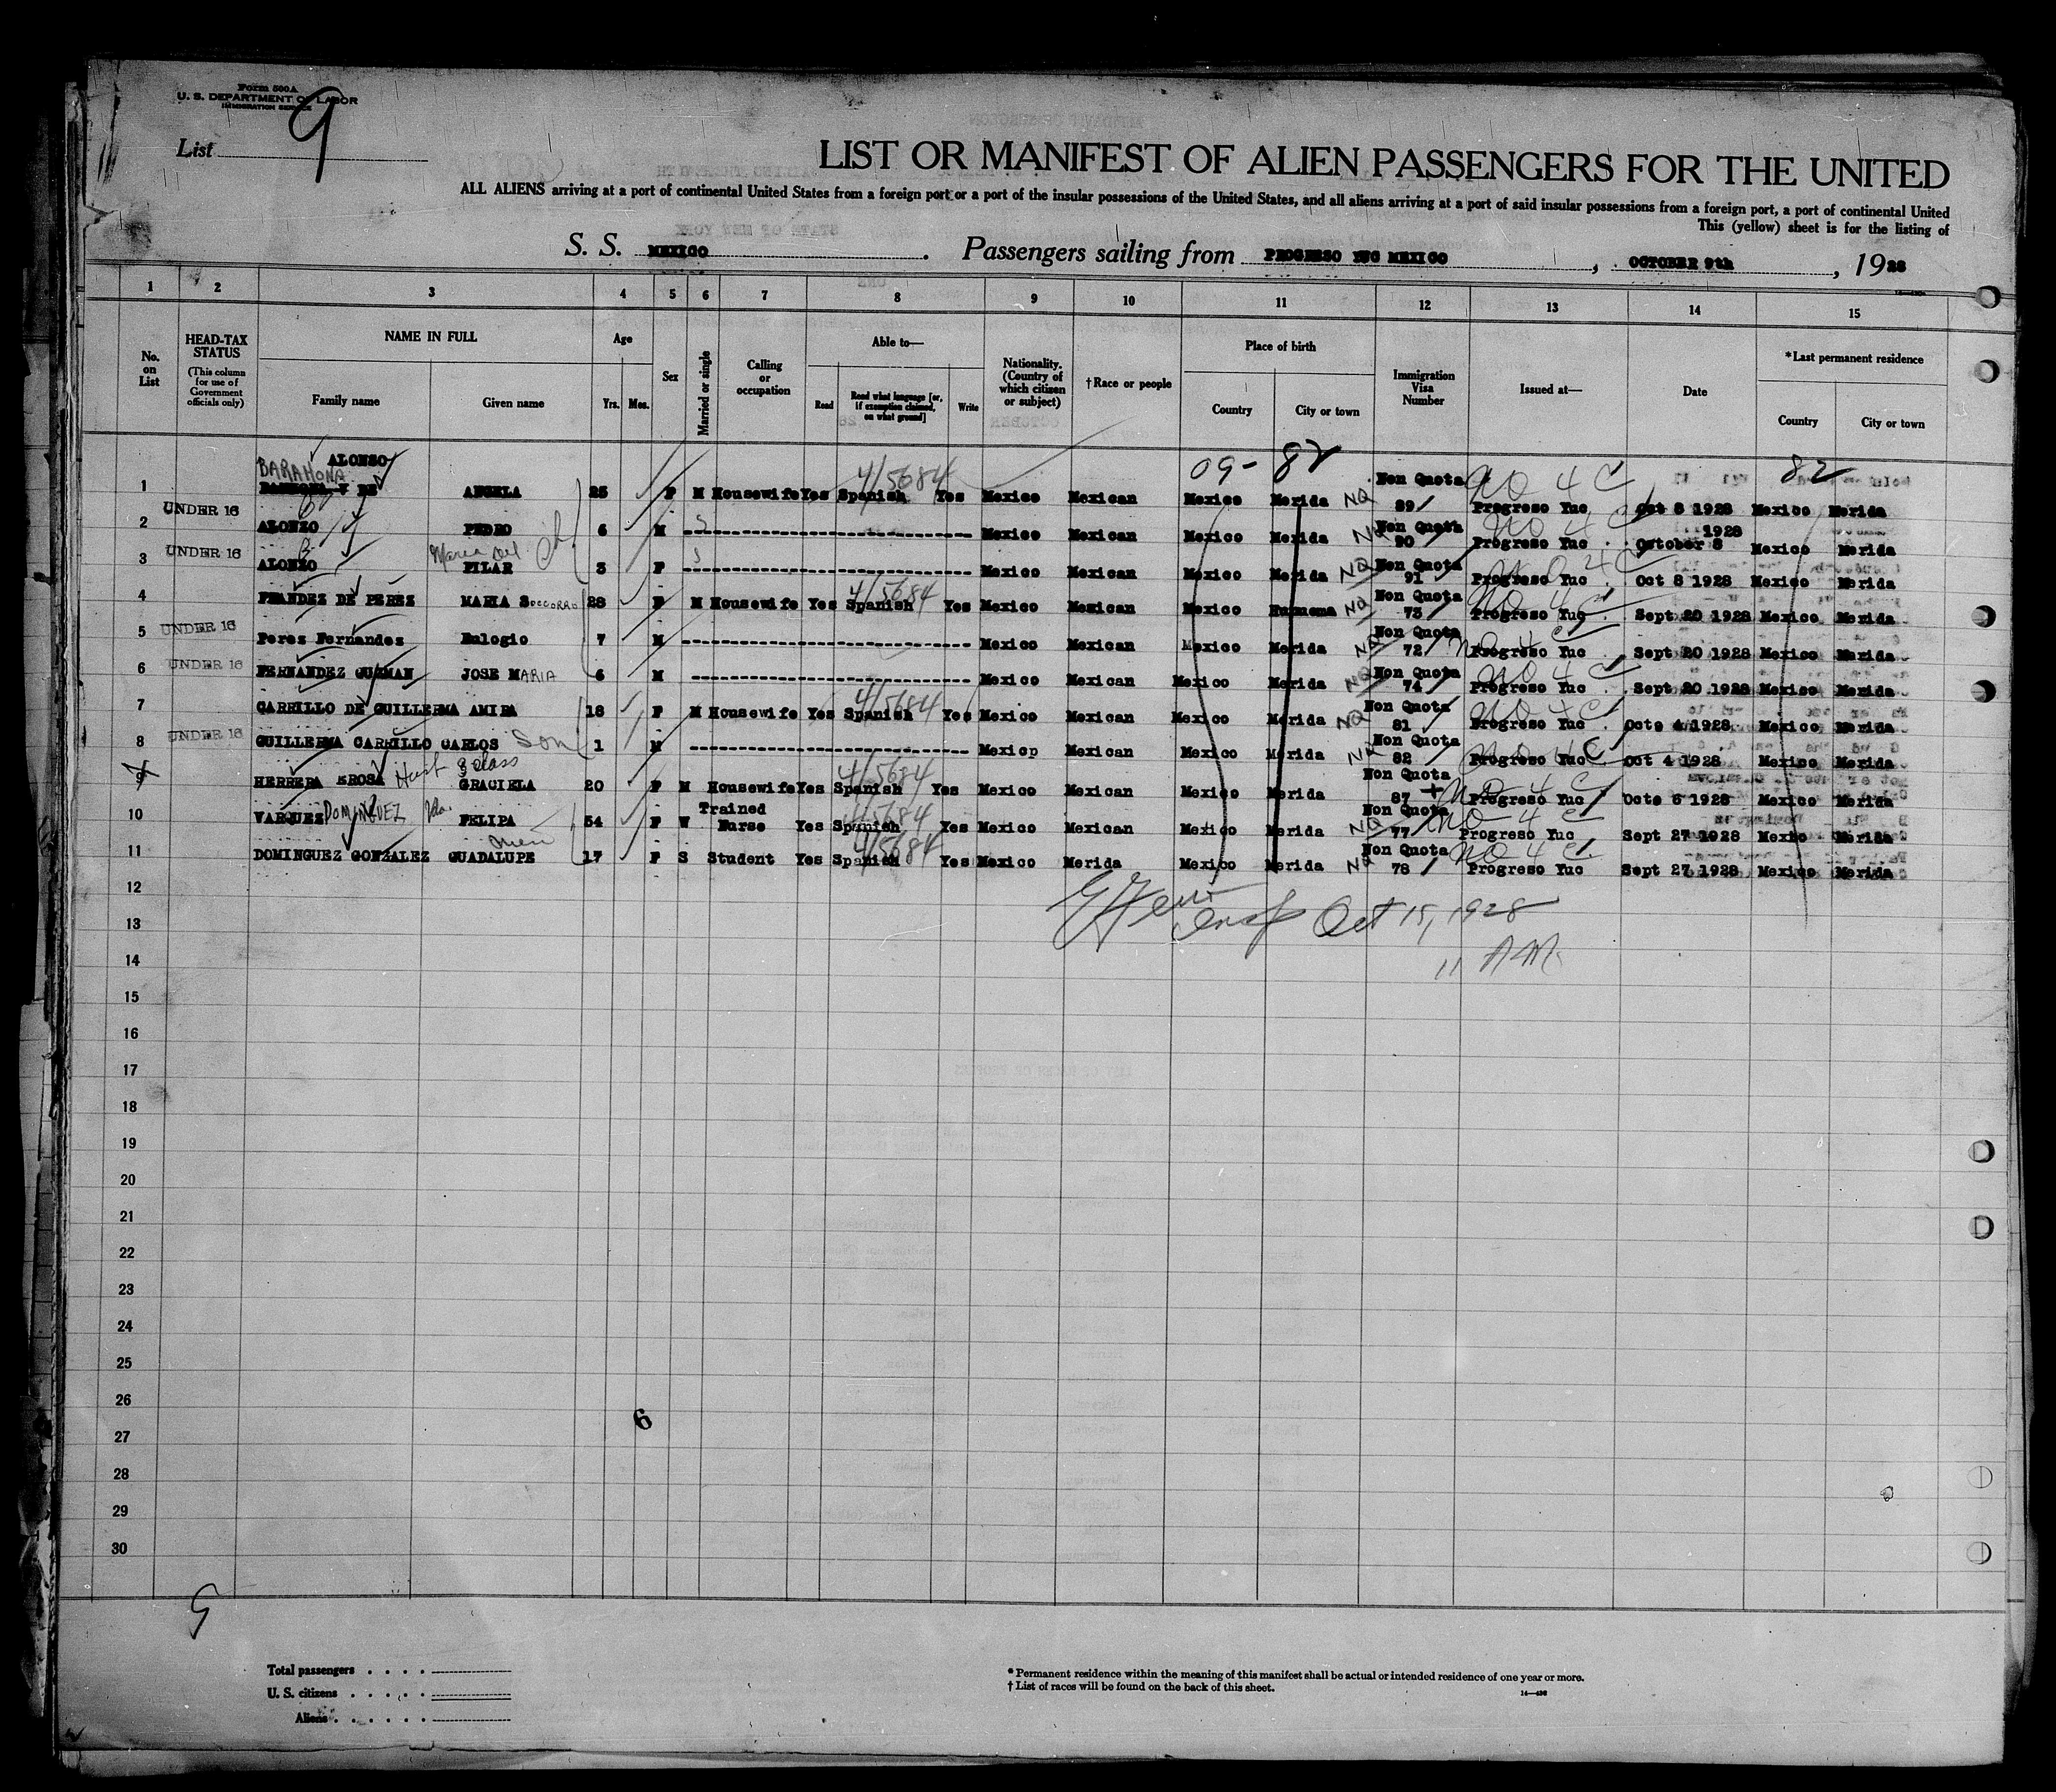 Form 500A
U. S. DEPARTMENT OF LABOR
IMMIGRATION SERVICE
List 9
LIST OR MANIFEST OF ALIEN PASSENGERS FOR THE UNITED
ALL ALIENS arriving at a port of continental United States from a foreign port or a port of the insular possessions of the United States, and all aliens arriving at a port of said insular possessions from a foreign port, a port of continental United
This (yellow) sheet is for the listing of
S. S. MEXICO. Passengers sailing from PROGRESO YUC MEXICO, OCTOBER 9th, 1928
1 2 3 4 5 6 7 8 9 10 11 12 13 14 15
No. on List
HEAD-TAX STATUS (This column for use of Government officials only)
NAME IN FULL
Family name Given name
Age
Yrs. Mos.
Sex
Married or single
Calling or occupation
Able to—
Read Read what language [or, if exemption claimed, on what ground] Write
Nationality. (Country of which citizen or subject)
†Race or people
Place of birth
Country City or town
Immigration Visa Number
Issued at—
Date
*Last permanent residence
Country City or town
ALONSO 4/5684 09- 82 82
BARAHONA
1 ANGELA 25 F M Housewife Yes Spanish Yes Mexico Mexican Mexico Merida NQ Non Quota 89 NO 4 C Progreso Yuc Oct 8 1928 Mexico Merida
2 UNDER 16 ALONZO PEDRO 6 M S Mexico Mexican Mexico Merida NQ Non Quota 90 NO 4 C Progreso Yuc October 8 1928 Mexico Merida
3 UNDER 16 ALONZO Maria del PILAR 3 F S Mexico Mexican Mexico Merida NQ Non Quota 91 Progreso Yuc Oct 8 1928 Mexico Merida
4 FNANDEZ DE PEREZ MARIA SOCCORRO 28 F M Housewife Yes Spanish 4/5684 Yes Mexico Mexican Mexico NQ Non Quota 73 NO 4 C Progreso Yuc Sept 20 1928 Mexico Merida
5 UNDER 16 Perez Fernandez Eulogio 7 M Mexico Mexican Mexico Merida NQ Non Quota 72 NO 4 C Progreso Yuc Sept 20 1928 Mexico Merida
6 UNDER 16 FERNANDEZ GUZMAN JOSE MARIA 6 M Mexico Mexican Mexico Merida NQ Non Quota 74 NO 4 C Progreso Yuc Sept 20 1928 Mexico Merida
7 CARRILLO DE GUILLERMA AMIRA 18 F M Housewife Yes Spanish 4/5684 Yes Mexico Mexican Mexico Merida NQ Non Quota 81 NO 4 C Progreso Yuc Octe 4 1928 Mexico Merida
8 UNDER 16 GUILLERMA CARRILLO CARLOS Son 1 M Mexico Mexican Mexico Merida NQ Non Quota 82 NO 4 C Progreso Yuc Oct 4 1928 Mexico Merida
9 HERRERA EROSA GRACIELA 20 F M Housewife Yes Spanish 4/5684 Yes Mexico Mexican Mexico Merida Non Quota 87 + NO 4 C Progreso Yuc Octe 6 1928 Mexico Merida
10 VARQUEZ DOMINGUEZ FELIPA 54 F W Trained Nurse Yes Spanish 4/5684 Yes Mexico Mexican Mexico Merida NQ Non Quota 77 NO 4 C Progreso Yuc Sept 27 1928 Mexico Merida
11 DOMINGUEZ GONZALEZ GUADALUPE 17 F S Student Yes Spanish 4/5684 Yes Mexico Merida Mexico Merida NQ Non Quota 78 NO 4 C Progreso Yuc Sept 27 1928 Mexico Merida
12
13 Insp Oct 15, 1928
14 11 AM
15
16
17
18
19
20
21
22
23
24
25
26
6
27
28
29
30
9
Total passengers
U. S. citizens
Aliens
* Permanent residence within the meaning of this manifest shall be actual or intended residence of one year or more.
† List of races will be found on the back of this sheet.
14—430